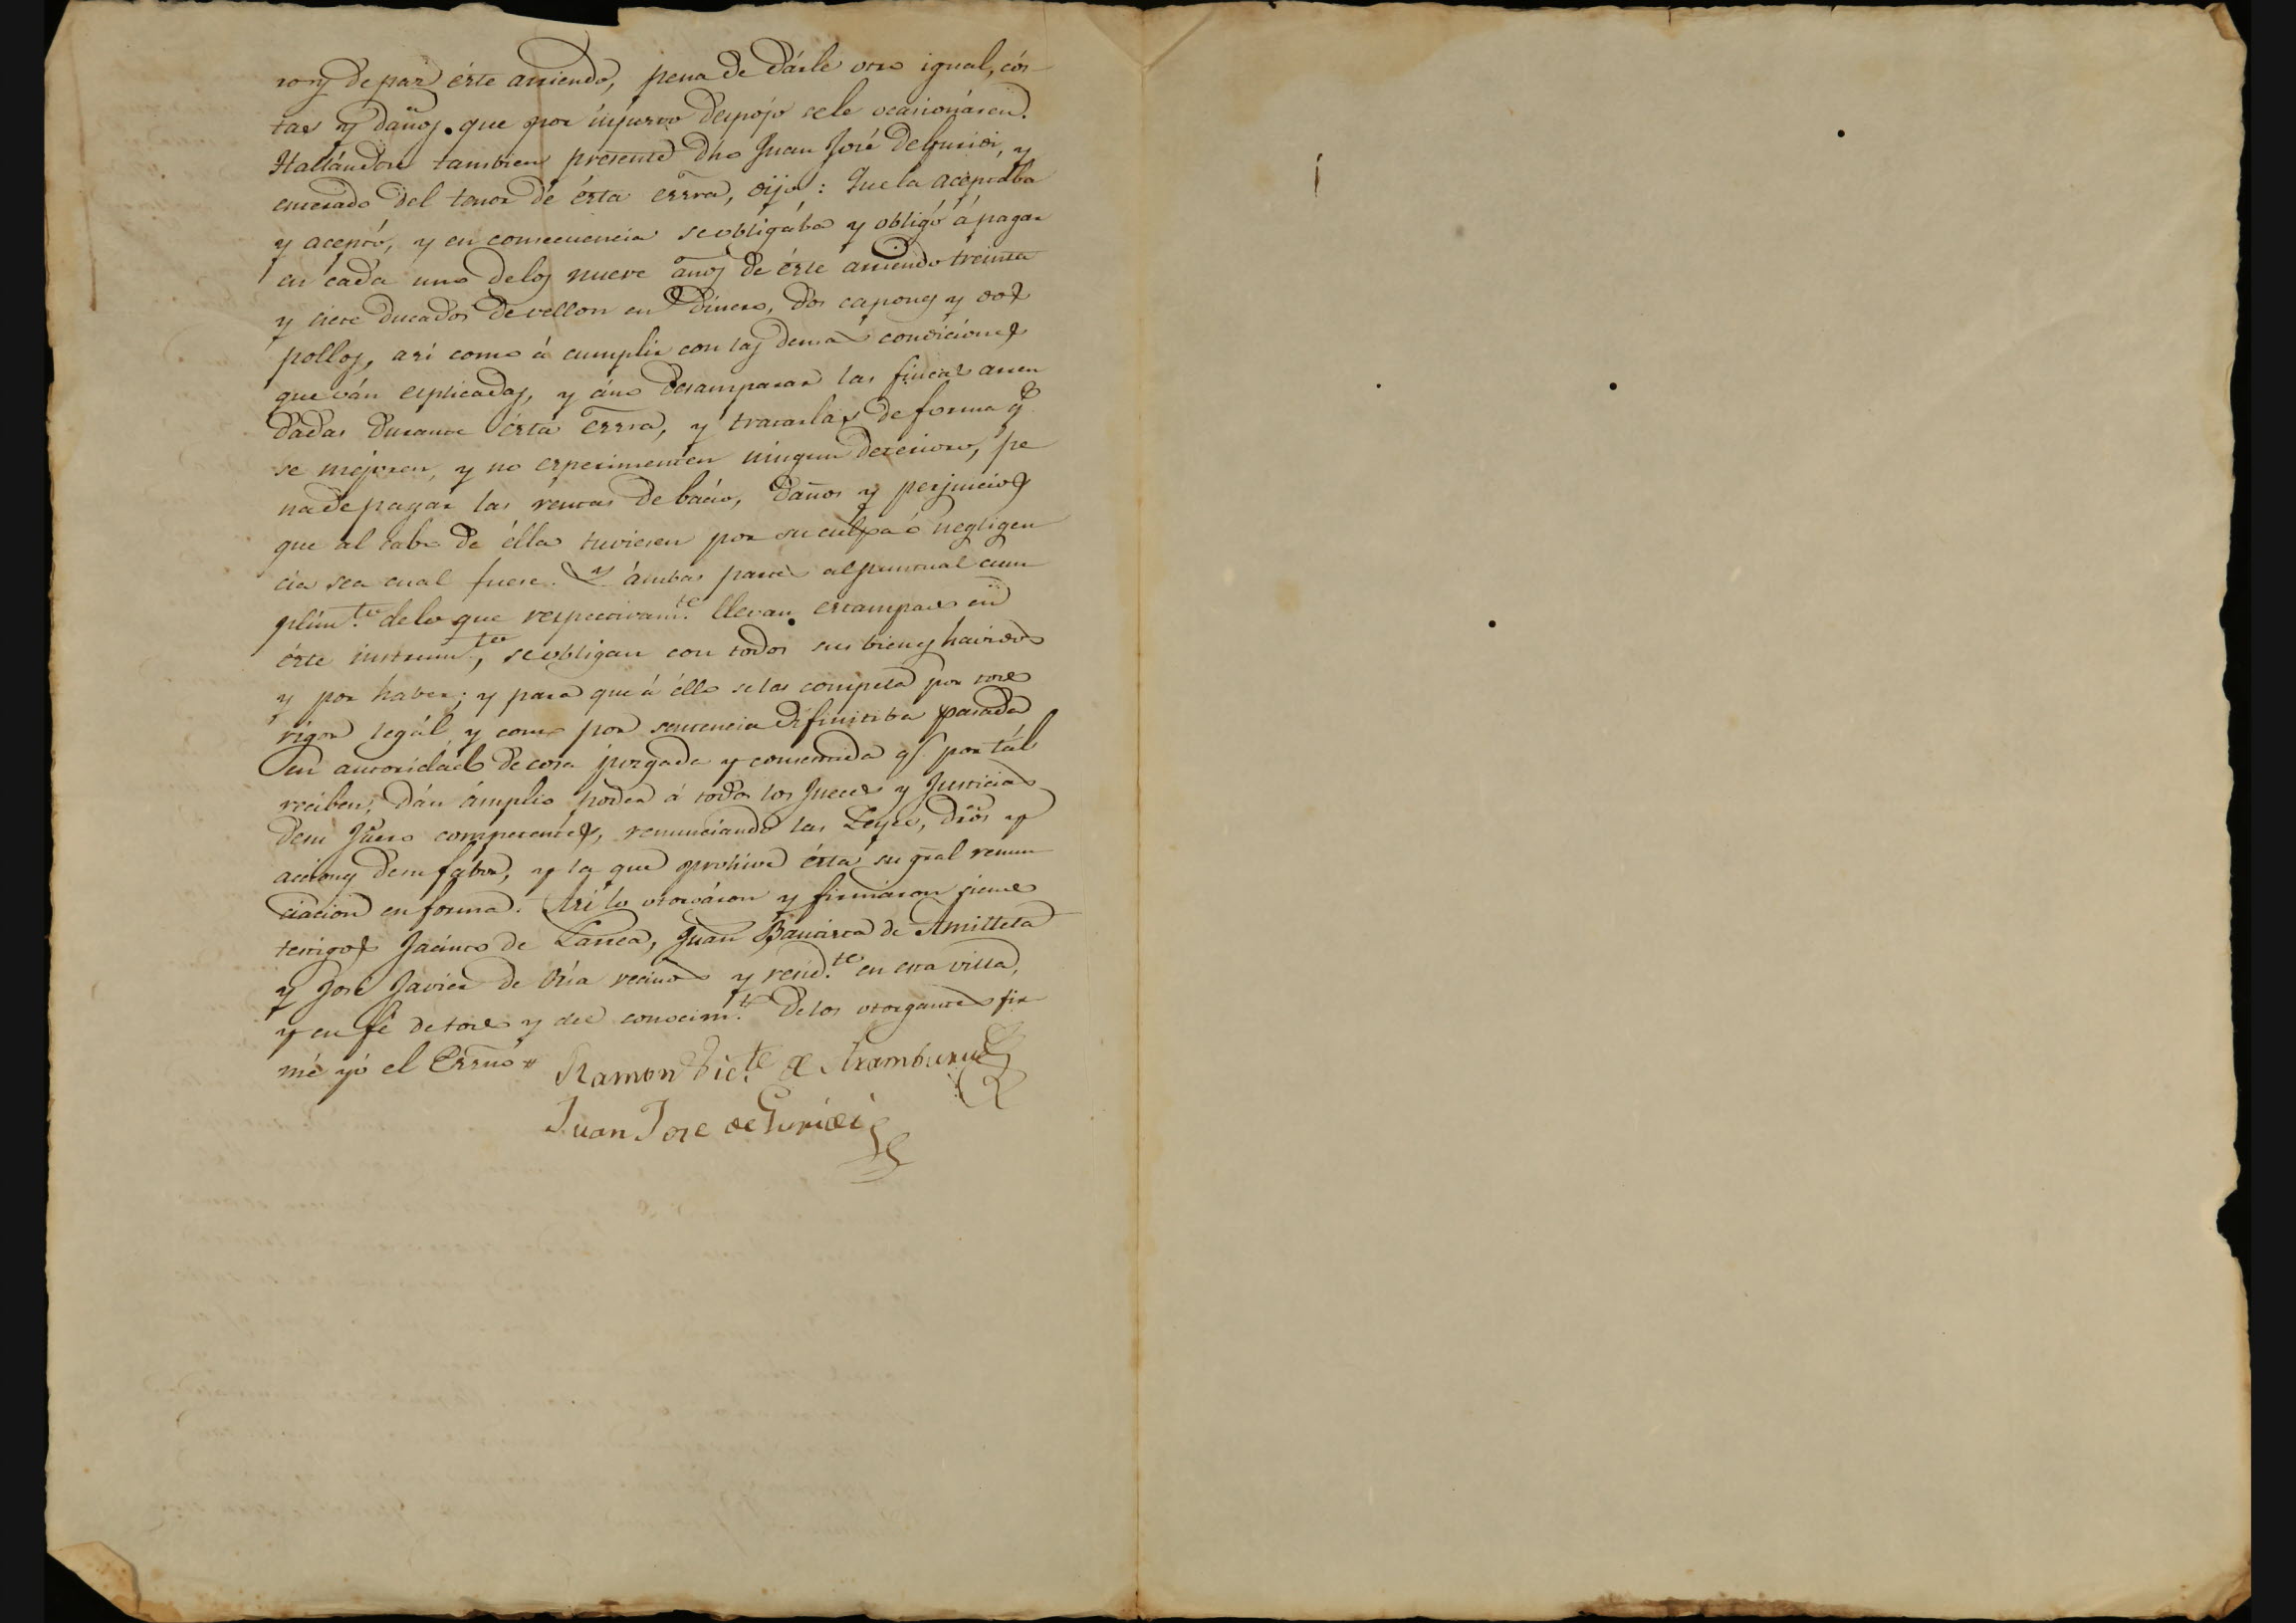 ros de paz éste arriendo, pena de dárle otro igual, cós-
tas y daños que por injusto despójo se le ocasionáren.
Hallándose tambien presente dho Juan José de Guridi, y
enterado del tenor de ésta essra, dijo: Que la aceptaba
y aceptó, y en consecuencia se obligába y obligó á pagar
en cada uno de los nueve años de éste arriendo treinta
y siete ducados de vellon en dinero, dos capones y dos
pollos, asi como á cumplir con las demas condiciones
que ván esplicadas, y á no desamparar las fincas arren
dadas durante ésta essra, y tratarlas de forma q.e
se mejoren, y no esperimenten ningun deterioro, pe
na de pagar las rentas de bacio, daños y perjuicios
que al cabo de élla tuvieren por su culpa ó negligen
cia sea cual fuere. Y ámbas partes al puntual cum
plim.to de lo que respectivam.te llevan estampado en
éste instrum.to, se obligan con todos sus bienes haividos
y por haver; y para que á éllo se las compela por todo
rigor legál, y como por sentencia difinitiba pasada
en autoridad de cosa juzgada y consentida q.e por tál
reciben, dán ámplio poder á todos los Jueces y Justicias
de su fuero competentes, renunciando las Leyes, dros y
acciones de su fabor, y la que prohive ésta su gral renun
ciacion en forma. Asi lo otorgáron y firmáron siendo
testigos Jacinto de Larrea, Juan Bautista de Amilleta
y José Javier de Oria vecinos y resid.te en esta villa,
y en fé de todo y del conocim.to de los otorgantes fir
mé yó el Essno =
Ramon Vic.te de Aramburu
Juan Jose de Guridi